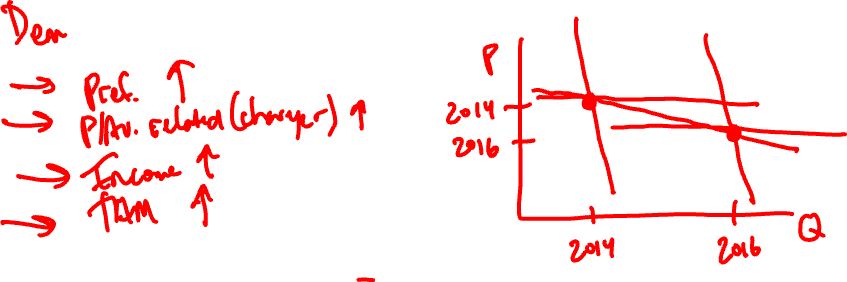 Dem
Pref. ↑
P/Av. related (charger) ↑
Income ↑
TAM ↑
P
2014
2016
2014
2016
Q